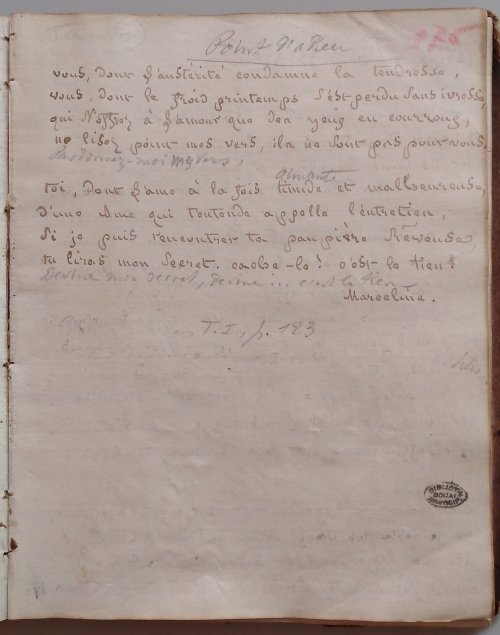 Point d'adieu
176
vous, dont l'austérité condamne la tendresse,
vous, dont le froid printemps s'est perdu sans ivresse,
qui n'offrez à l'amour que des yeux en courroux,
ne lisez point mes vers, ils ne sont pas pour vous.
Pardonnez-moi mes vers,
aimante
toi, dont l'ame à la fois timide et malheureuse,
d'une ame qui t'entende appelle l'entretien,
Si je puis rencontrer ta paupière rêveuse,
tu liras mon secret, cache-le! c'est le tien!
Devine mon secret, devine ... c'est le tien
Marceline.
T. I, p. 183
BIBLIOTH
DOUAI